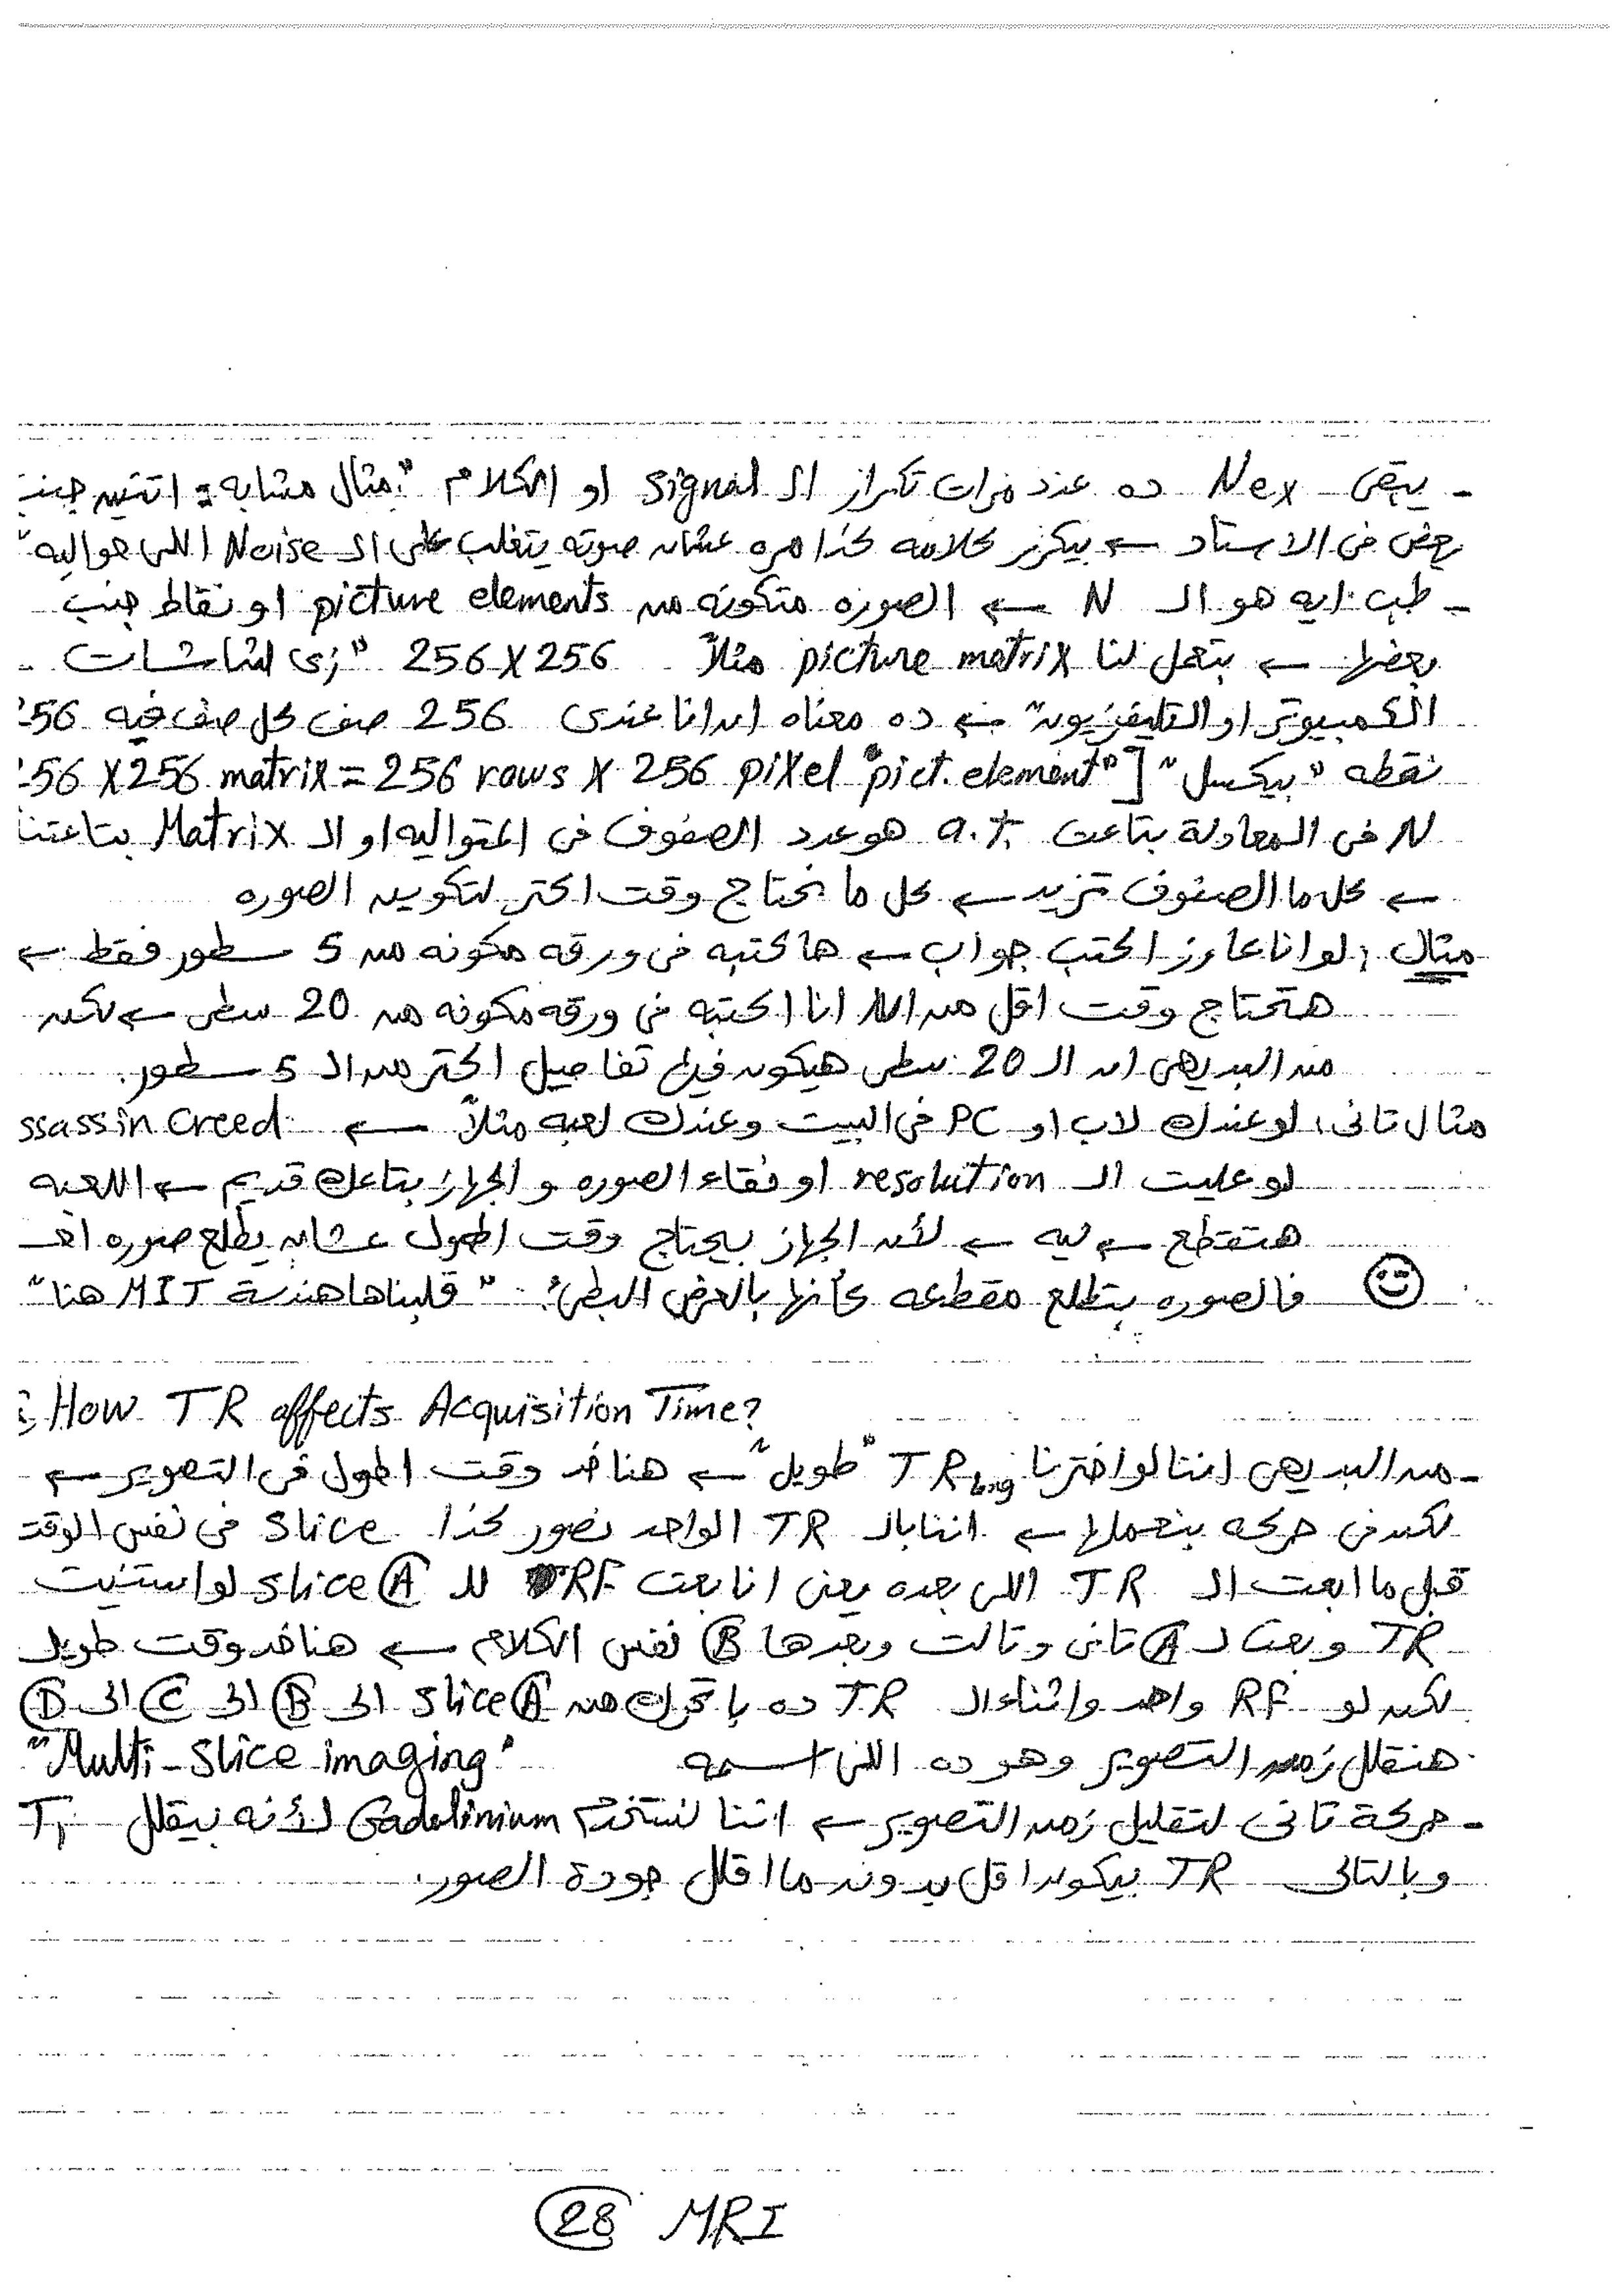 - يبقى Nex ده عدد مرات تكرار الـ Signal او الكلام "مثال مشابه: اتنين جنب
بعض فى الاستاد ← بيكرر كلامه كذا مره عشان صوته يتغلب على الـ Noise اللى حواليه"
- طب ايه هو الـ N ← الصوره متكونه من picture elements او نقاط جنب
بعضها ← بتعمل لنا picture matrix مثلاً 256 X 256 "زى الشاشات
الكمبيوتر او التليفزيون" ← ده معناه ان انا عندى 256 صف كل صف فيه 256
نقطه "بيكسل" [256 X 256 matrix = 256 rows X 256 pixel "pict. element"
N فى المعادلة بتاعت a.t. هو عدد الصفوف فى المتواليه او الـ Matrix بتاعتنا
← كل ما الصفوف تزيد ← كل ما نحتاج وقت اكتر لتكوين الصوره
مثال: لو انا عاوز اكتب جواب ← هاكتبه فى ورقه مكونه من 5 سطور فقط ←
هتحتاج وقت اقل من انا اكتبه فى ورقه مكونه من 20 سطر ← لكن
من البديهى ان الـ 20 سطر هيكون فيها تفاصيل اكتر من الـ 5 سطور.
مثال تانى: لو عندك لاب او PC فى البيت وعندك لعبه مثلاً ← ssassin Creed
لو عليت الـ resolution او نقاء الصوره و الجهاز بتاعك قديم ← اللعبه
هتقطع ← ليه ← لأن الجهاز بيحتاج وقت اطول عشان يطلع صوره
فالصوره بتطلع مقطعه كأنها بالعرض البطئ. "قلبناها هندسة MIT هنا"
How TR affects Acquisition Time?
- من البديهى اننا لو اخترنا TR long "طويل" ← هناخد وقت اطول فى التصوير ←
لكن فى حركه بنعملها ← اننا بالـ TR الواحد نصور كذا Slice فى نفس الوقت
قبل ما ابعت الـ TR اللى بعده يعنى انا بعت RF للـ slice A لو استنيت
TR و بعت لـ A تانى و تالت وبعدها B نفس الكلام ← هناخد وقت طويل
لكن لو RF واحد واثناء الـ TR ده باتحرك من Slice A الى B الى C الى D
هنقلل زمن التصوير وهو ده اللى اسمه "Multi-Slice imaging"
- حركة تانى لتقليل زمن التصوير ← اننا نستخدم Gadolinium لأنه بيقلل T1
وبالتالى TR بيكون اقل بدون ما اقلل جودة الصور.
28 MRI